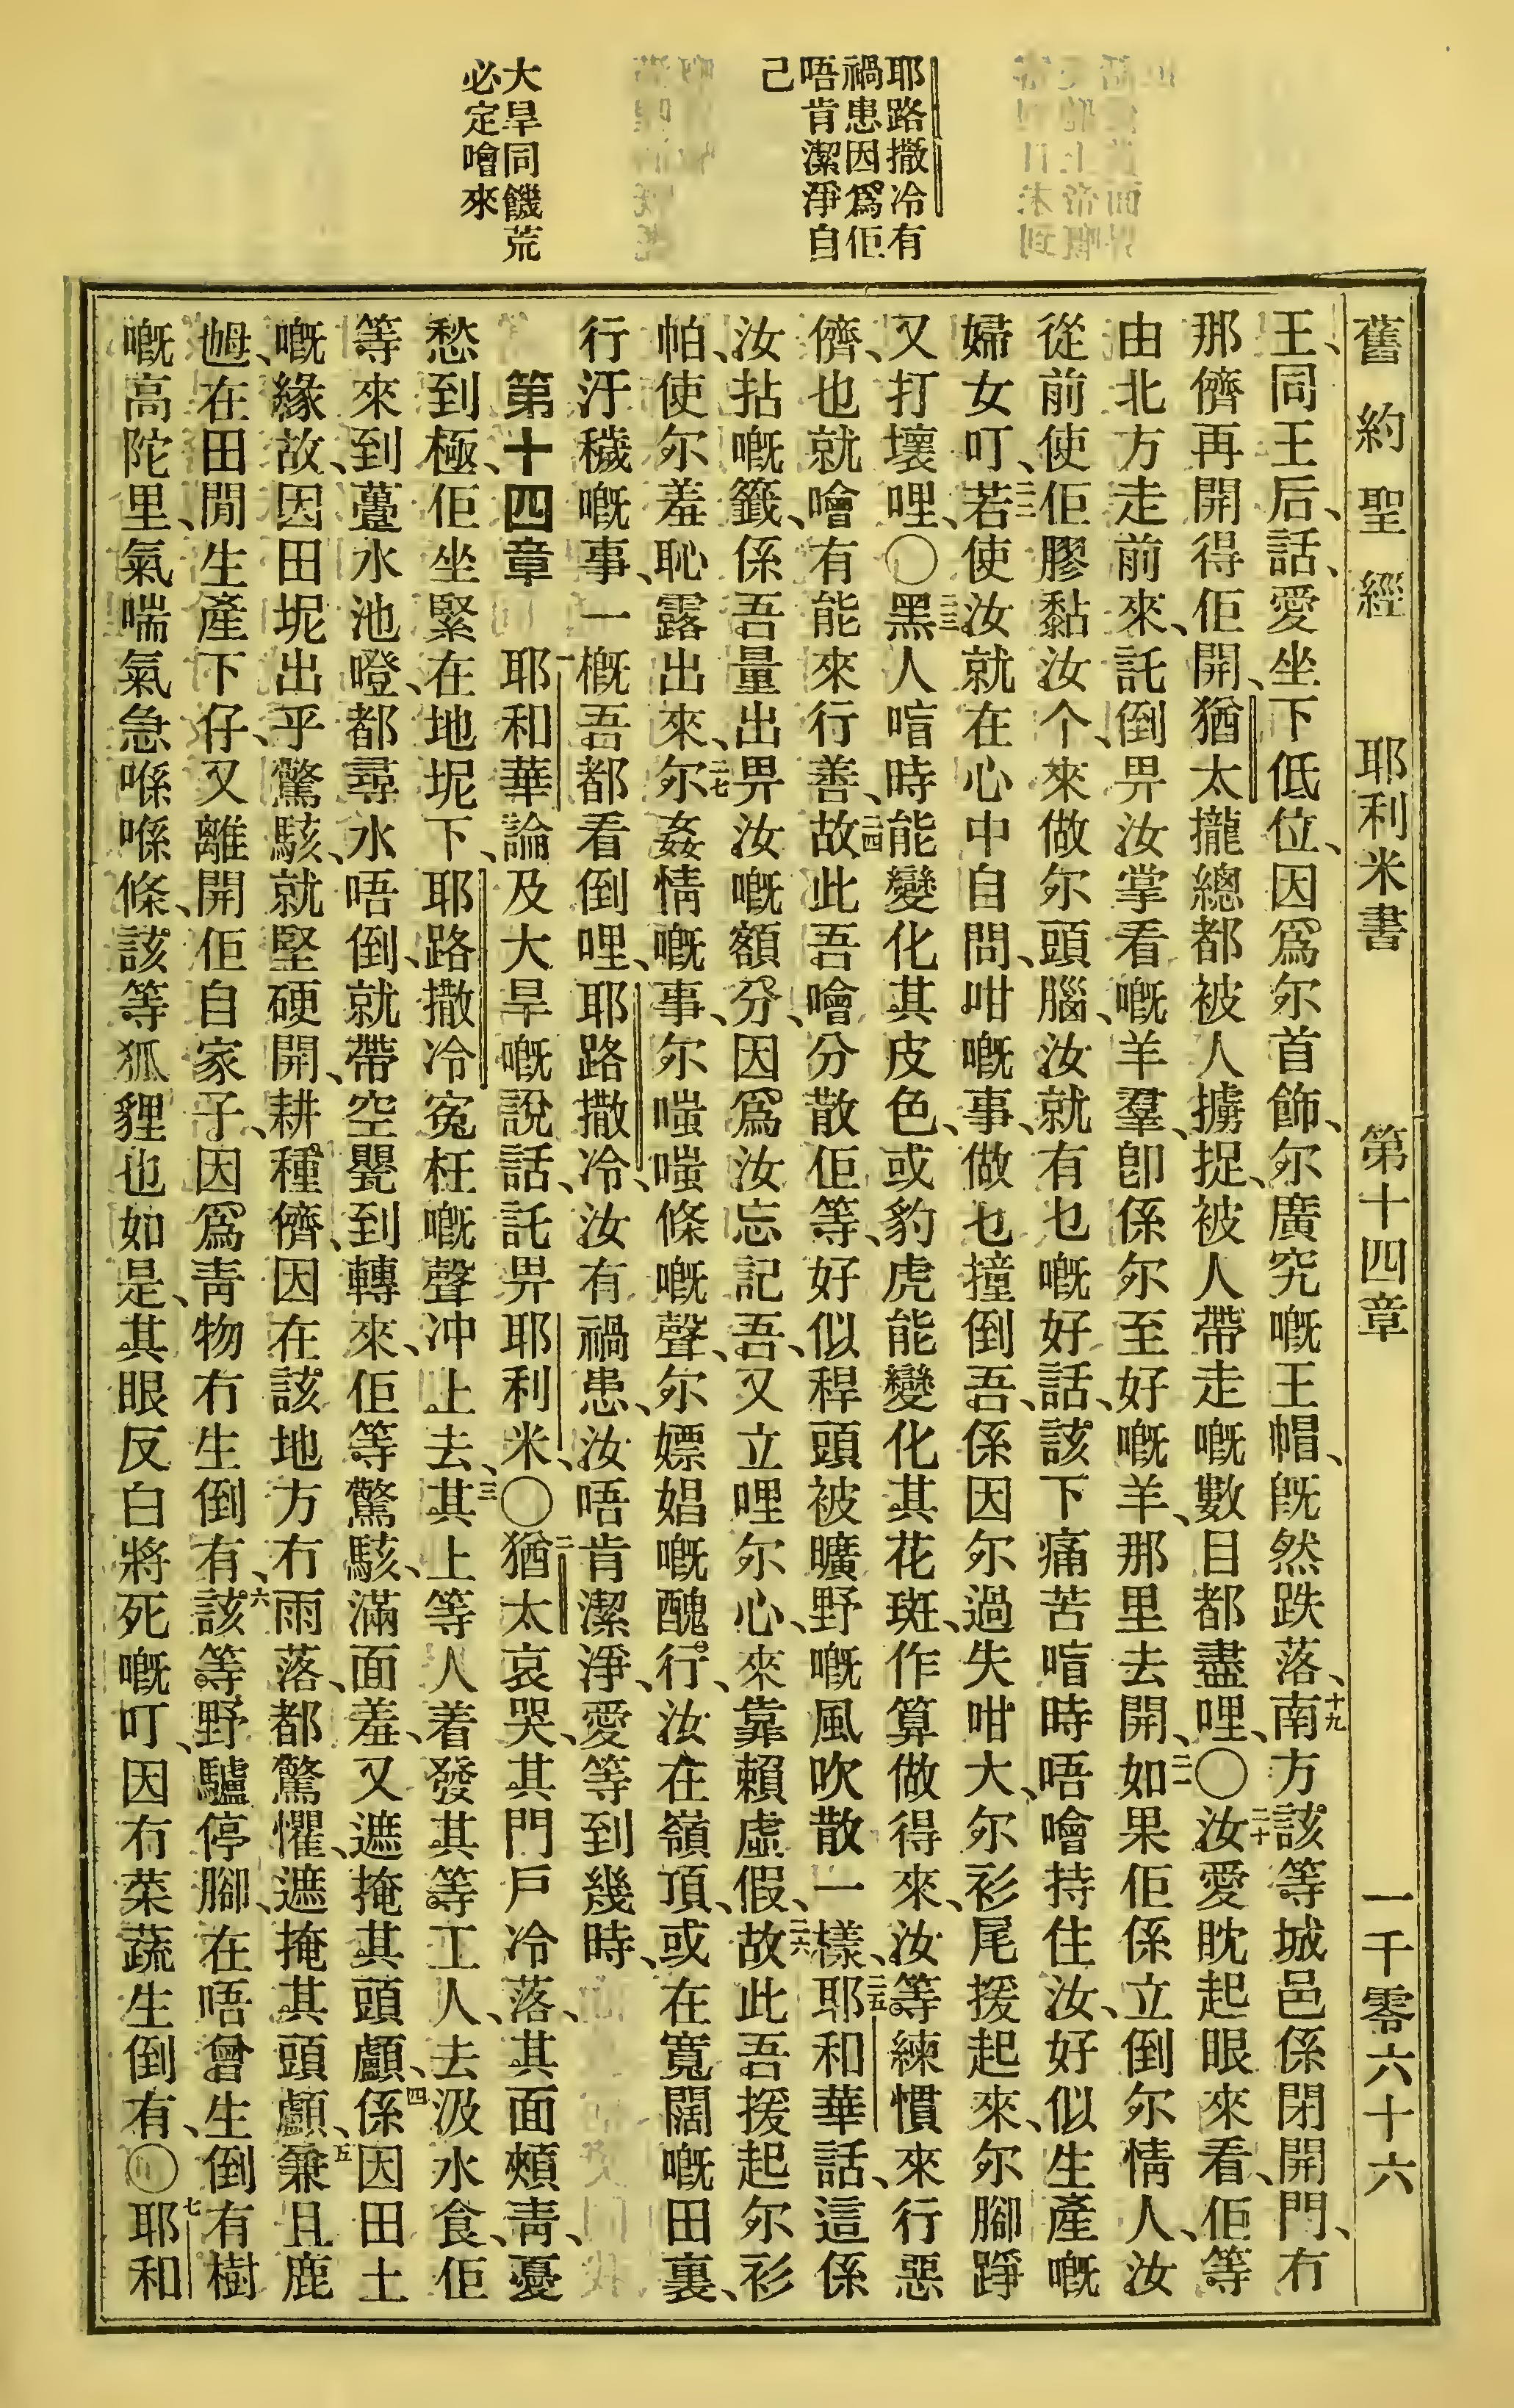 耶路撒冷有
禍患因爲佢
唔肯潔淨自
己
大旱同饑荒
必定噲來
舊約聖經 耶利米書 第十四章 一千零六十六
王、同王后、話、愛坐下低位、因爲尔首飾、尔廣究嘅王帽、旣然跌落、十九南方該等城邑係閉開門、冇
那儕再開得佢開、猶太攏總都被人擄捉、被人帶走嘅數目都盡哩、〇二十汝愛眈起眼來看、佢等
由北方走前來、託倒畀汝掌看嘅羊羣、卽係尔至好嘅羊、那里去開、二一如果佢係立倒尔情人、汝
從前使佢膠黏汝个、來做尔頭腦、汝就有乜嘅好話、該下痛苦喑時唔噲持住汝、好似生產嘅
婦女叮、二二若使汝就在心中自問、咁嘅事、做乜撞倒吾、係因尔過失咁大、尔衫尾援起來、尔腳踭
又打壞哩、〇二三黑人喑時能變化其皮色、或豹虎能變化其花斑、作算做得來、汝等練慣來行惡
儕、也就噲有能來行善、二四故此吾噲分散佢等、好似稈頭被曠野嘅風吹散一樣、二五耶和華話、這係
汝拈嘅籤、係吾量出畀汝嘅額分、因爲汝忘記吾、又立哩尔心、來靠賴虛假、二六故此吾援起尔衫
帕、使尔羞恥露出來、二七尔姦情嘅事、尔嗤嗤條嘅聲、尔嫖娼嘅醜行、汝在嶺頂、或在寬闊嘅田裏、
行汙穢嘅事、一槪吾都看倒哩、耶路撒冷、汝有禍患、汝唔肯潔淨、愛等到幾時、
第十四章 一耶和華論及大旱嘅說話、託畀耶利米、〇二猶太哀哭、其門戶冷落、其面頰靑、憂
愁到極、佢坐緊在地坭下、耶路撒冷寃枉嘅聲冲上去、三其上等人着發其等工人、去汲水食、佢
等來到躉水池噔、都尋水唔倒、就帶空甖到轉來、佢等驚駭、滿面羞、又遮掩其頭顱、四係因田土
嘅緣故、因田坭出乎驚駭、就堅硬開、耕種儕、因在該地方冇雨落、都驚懼、遮掩其頭顱、五兼且鹿
乸、在田閒生產下仔、又離開佢自家子、因爲靑物冇生倒有、六該等野驢停腳、在唔曾生倒有樹
嘅高陀里、氣喘氣急喺喺條、該等狐貍也如是、其眼反白將死嘅叮、因冇菜蔬生倒有、〇七耶和